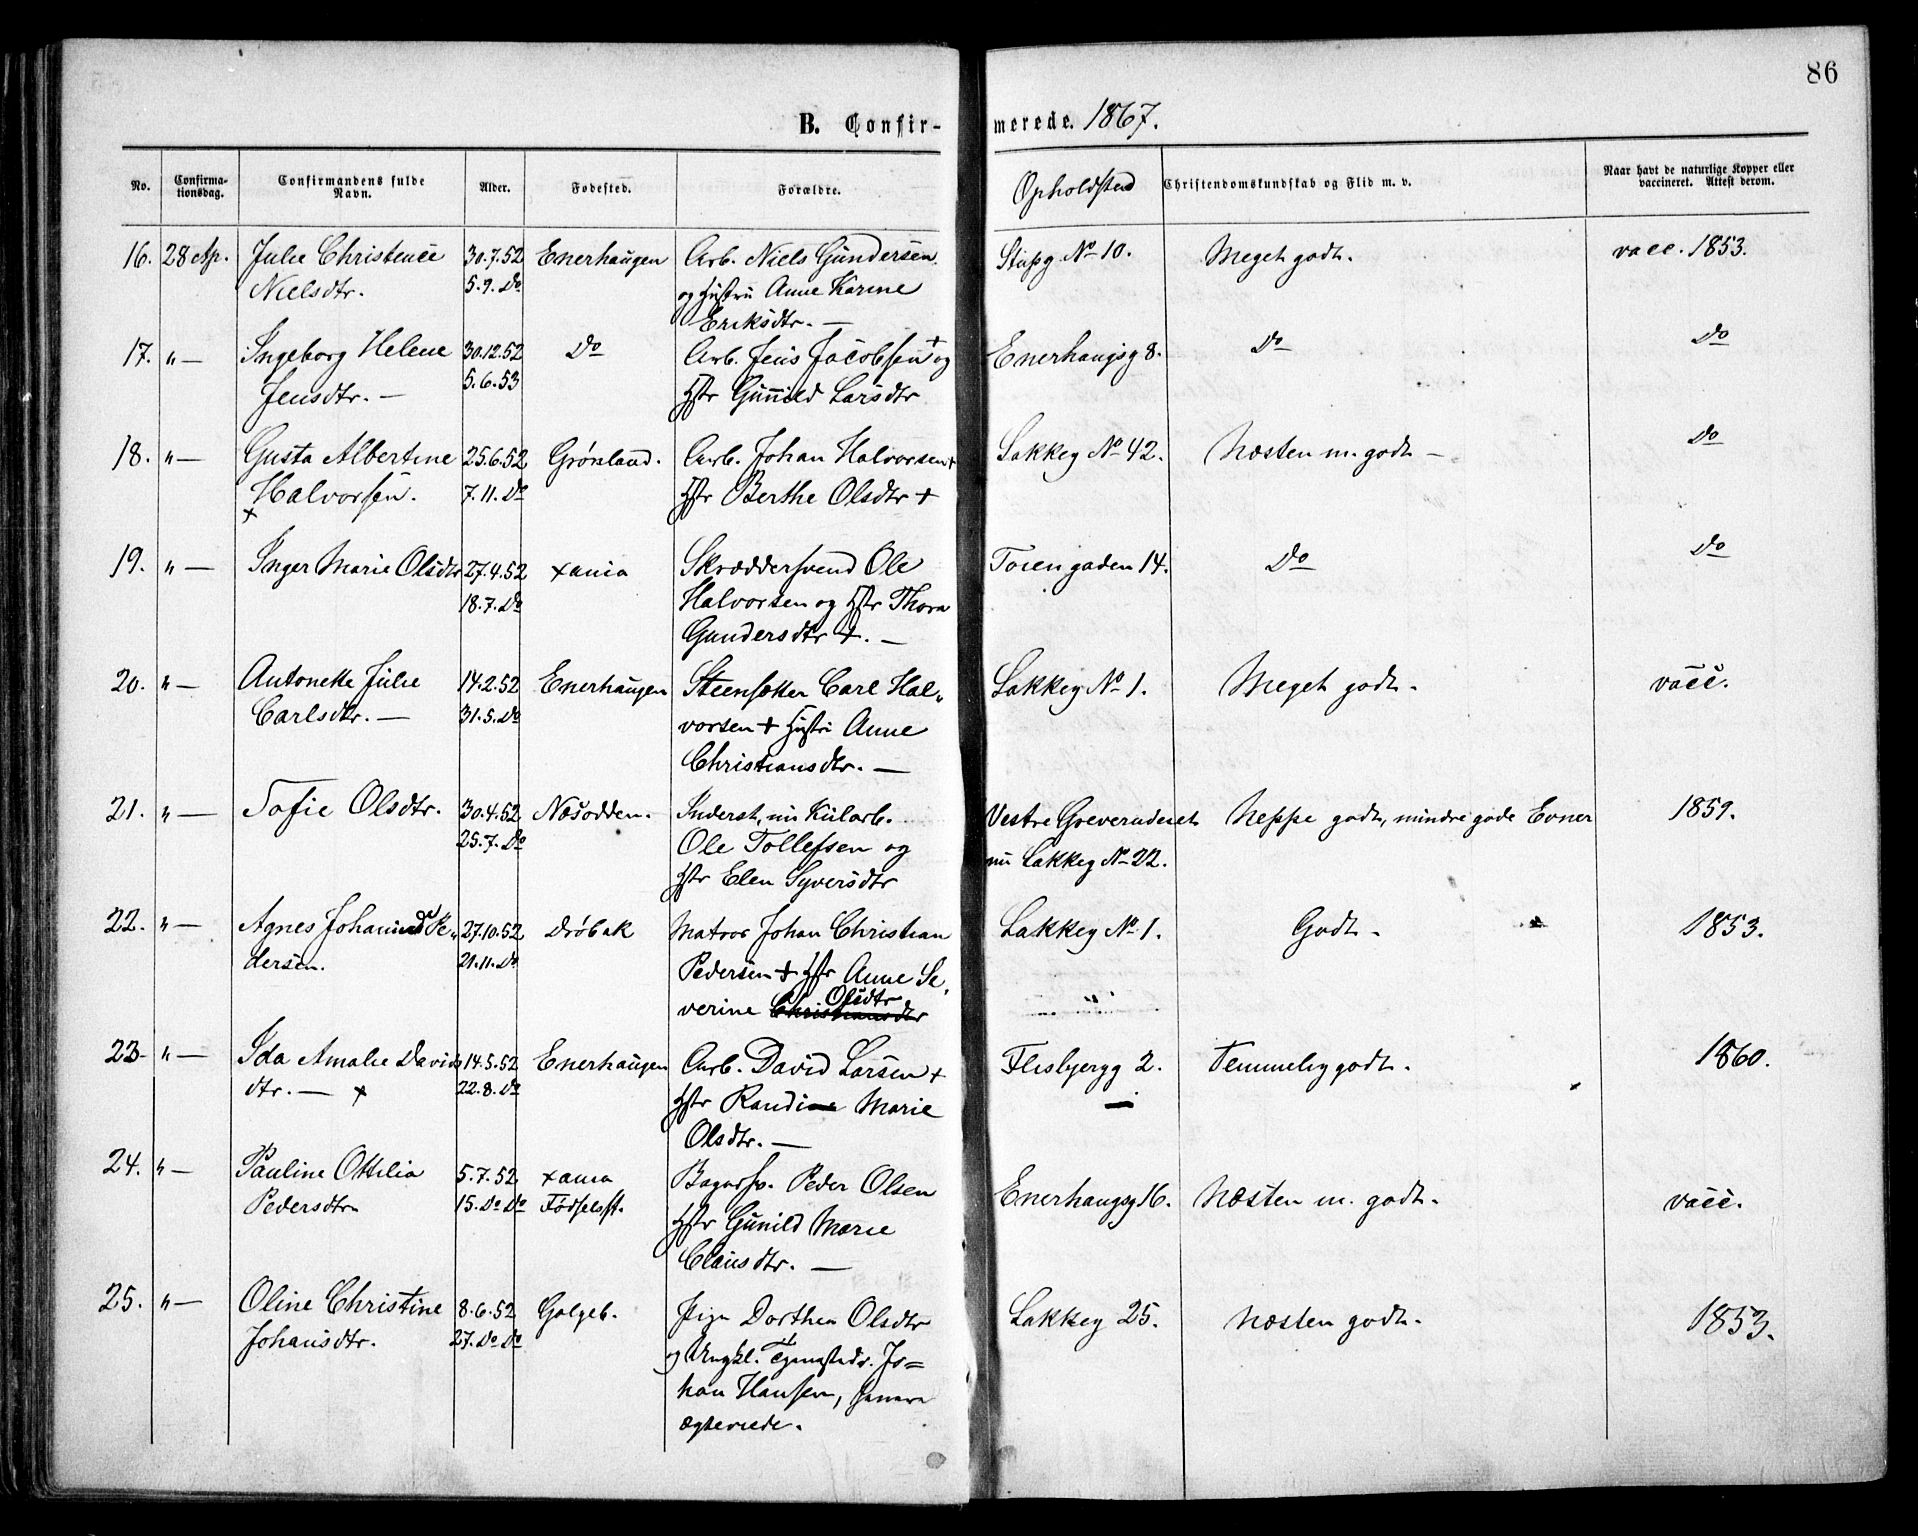 86
B. Confirmerede. 1867.
No. | Confirmationsdag. | Confirmandens fulde Navn. | Alder. | Fødested. | Forældre. | Opholdsted | Christendomskundskab og Flid m. v. | Naar havt de naturlige Kopper eller vaccineret. Attest derom.
16. 28 Ap. Julie Christence 30.7.52 Enerhaugen Arb. Niels Gundersen No 10. Meget godt. vacc. 1853.
Nielsdtr. 5.9. Do og Hustru Anne Karine
Eriksdtr. —
17. " — Ingeborg Helene 30.12.52 Do Arb. Jens Jacobsen + og Enerhaugsg 8. Do Do
Jensdtr. — 5.6.53 Hstr Gunnild Larsdtr
18. " — Gusta Albertine 25.6.52 Grønland. Arb. Johan Halvorsen + Lakkeg No 42. Næsten m. godt — Do
Halvorsen. 7.11. Do Hstr Berthe Olsdtr +
+
19. " — Inger Marie Olsdtr 27.4.52 xania Skræddersvend Ole Toiengaden 14. Do Do
18.7. Do Halvorsen og Hstr Thora
Gundersdtr +. —
20. " — Antonette Julie 14.2.52 Enerhaugen Steensætter Carl Hal- Lakkeg No 1. Meget godt. vacc.
Carlsdtr. — 31.5. Do vorsen + Hustru Anne
Christiansdtr. —
21. " — Sofie Olsdtr. 30.4.52 Næsodden. Inderst, nu Kularb. Vestre Greverudeiet Neppe godt, mindre gode Evner 1859.
25.7. Do Ole Tollefsen og nu Lakkeg No 22.
Hstr Elen Syversdtr
22. " — Agnes Pe- 27.10.52 Drøbak Matros Johan Christian Lakkeg No 1. Godt. 1853.
dersen. 21.11. Do Pedersen + Hstr Anne Se-
Olsdtr
verine Christiansdtr
23 " — Ida Amalie Davids 14.5.52 Enerhaugen Arb. David Larsen + Flisbjergg 2. Temmelig godt. 1860.
dtr. — + 22.8. Do Hstr Randine Marie
Olsdtr. —
24. " — Pauline Ottilia 5.7.52 xania Bagersv. Peder Olsen Enerhaugsg 16. Næsten m. godt. vacc.
Pedersdtr 15. Do Do Fødselsst. Hstr Gunild Marie
Clausdtr. —
25. " — Oline Christine 8.6.52 Galgeb. Pige Dorthea Olsdtr Lakkeg 25. Næsten godt. 1853.
Johansdtr. 27. Do Do og Ungkl. Jo=
han Hansen, senere
ægteviede.